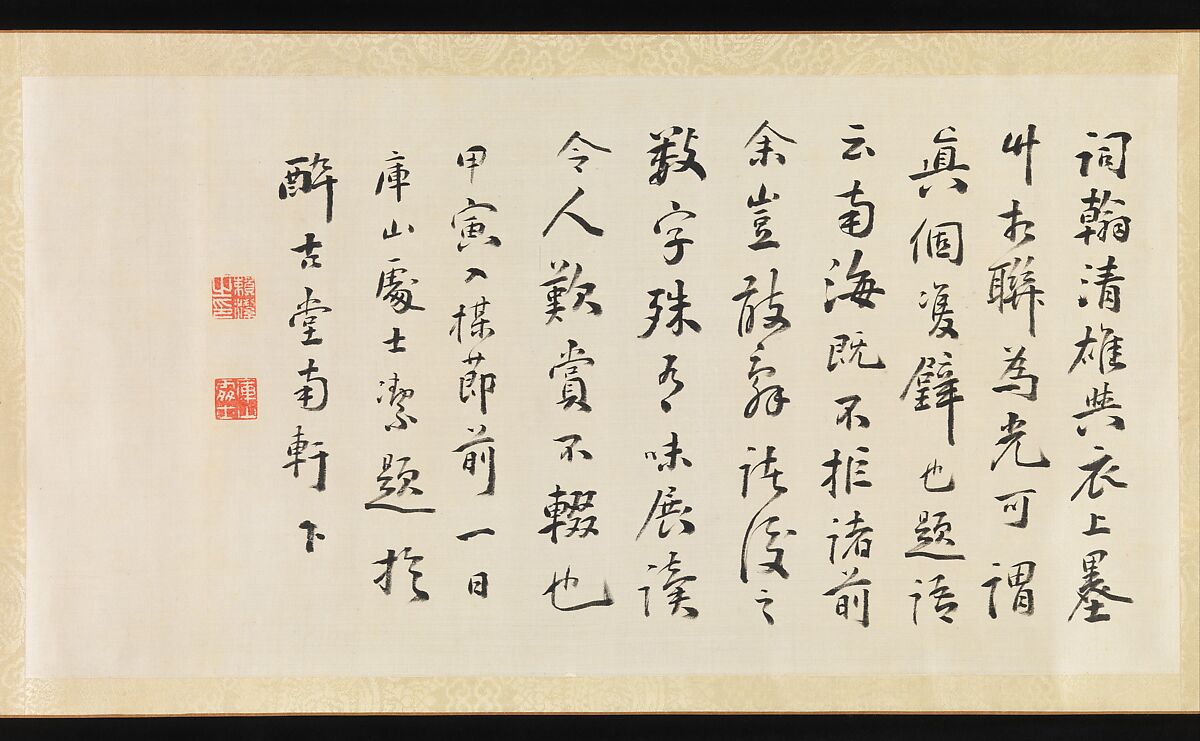 詞翰清雄與衣上墨
竹相聯為光可謂
眞個雙璧也題語
云南海既不拒諸前
余豈敢辭諸後之
數字殊有味展讀
令人歎賞不輟也
甲寅入楳節前一日
庫山處士潔題於
醉古堂南軒下
賴潔之印
庫山處士